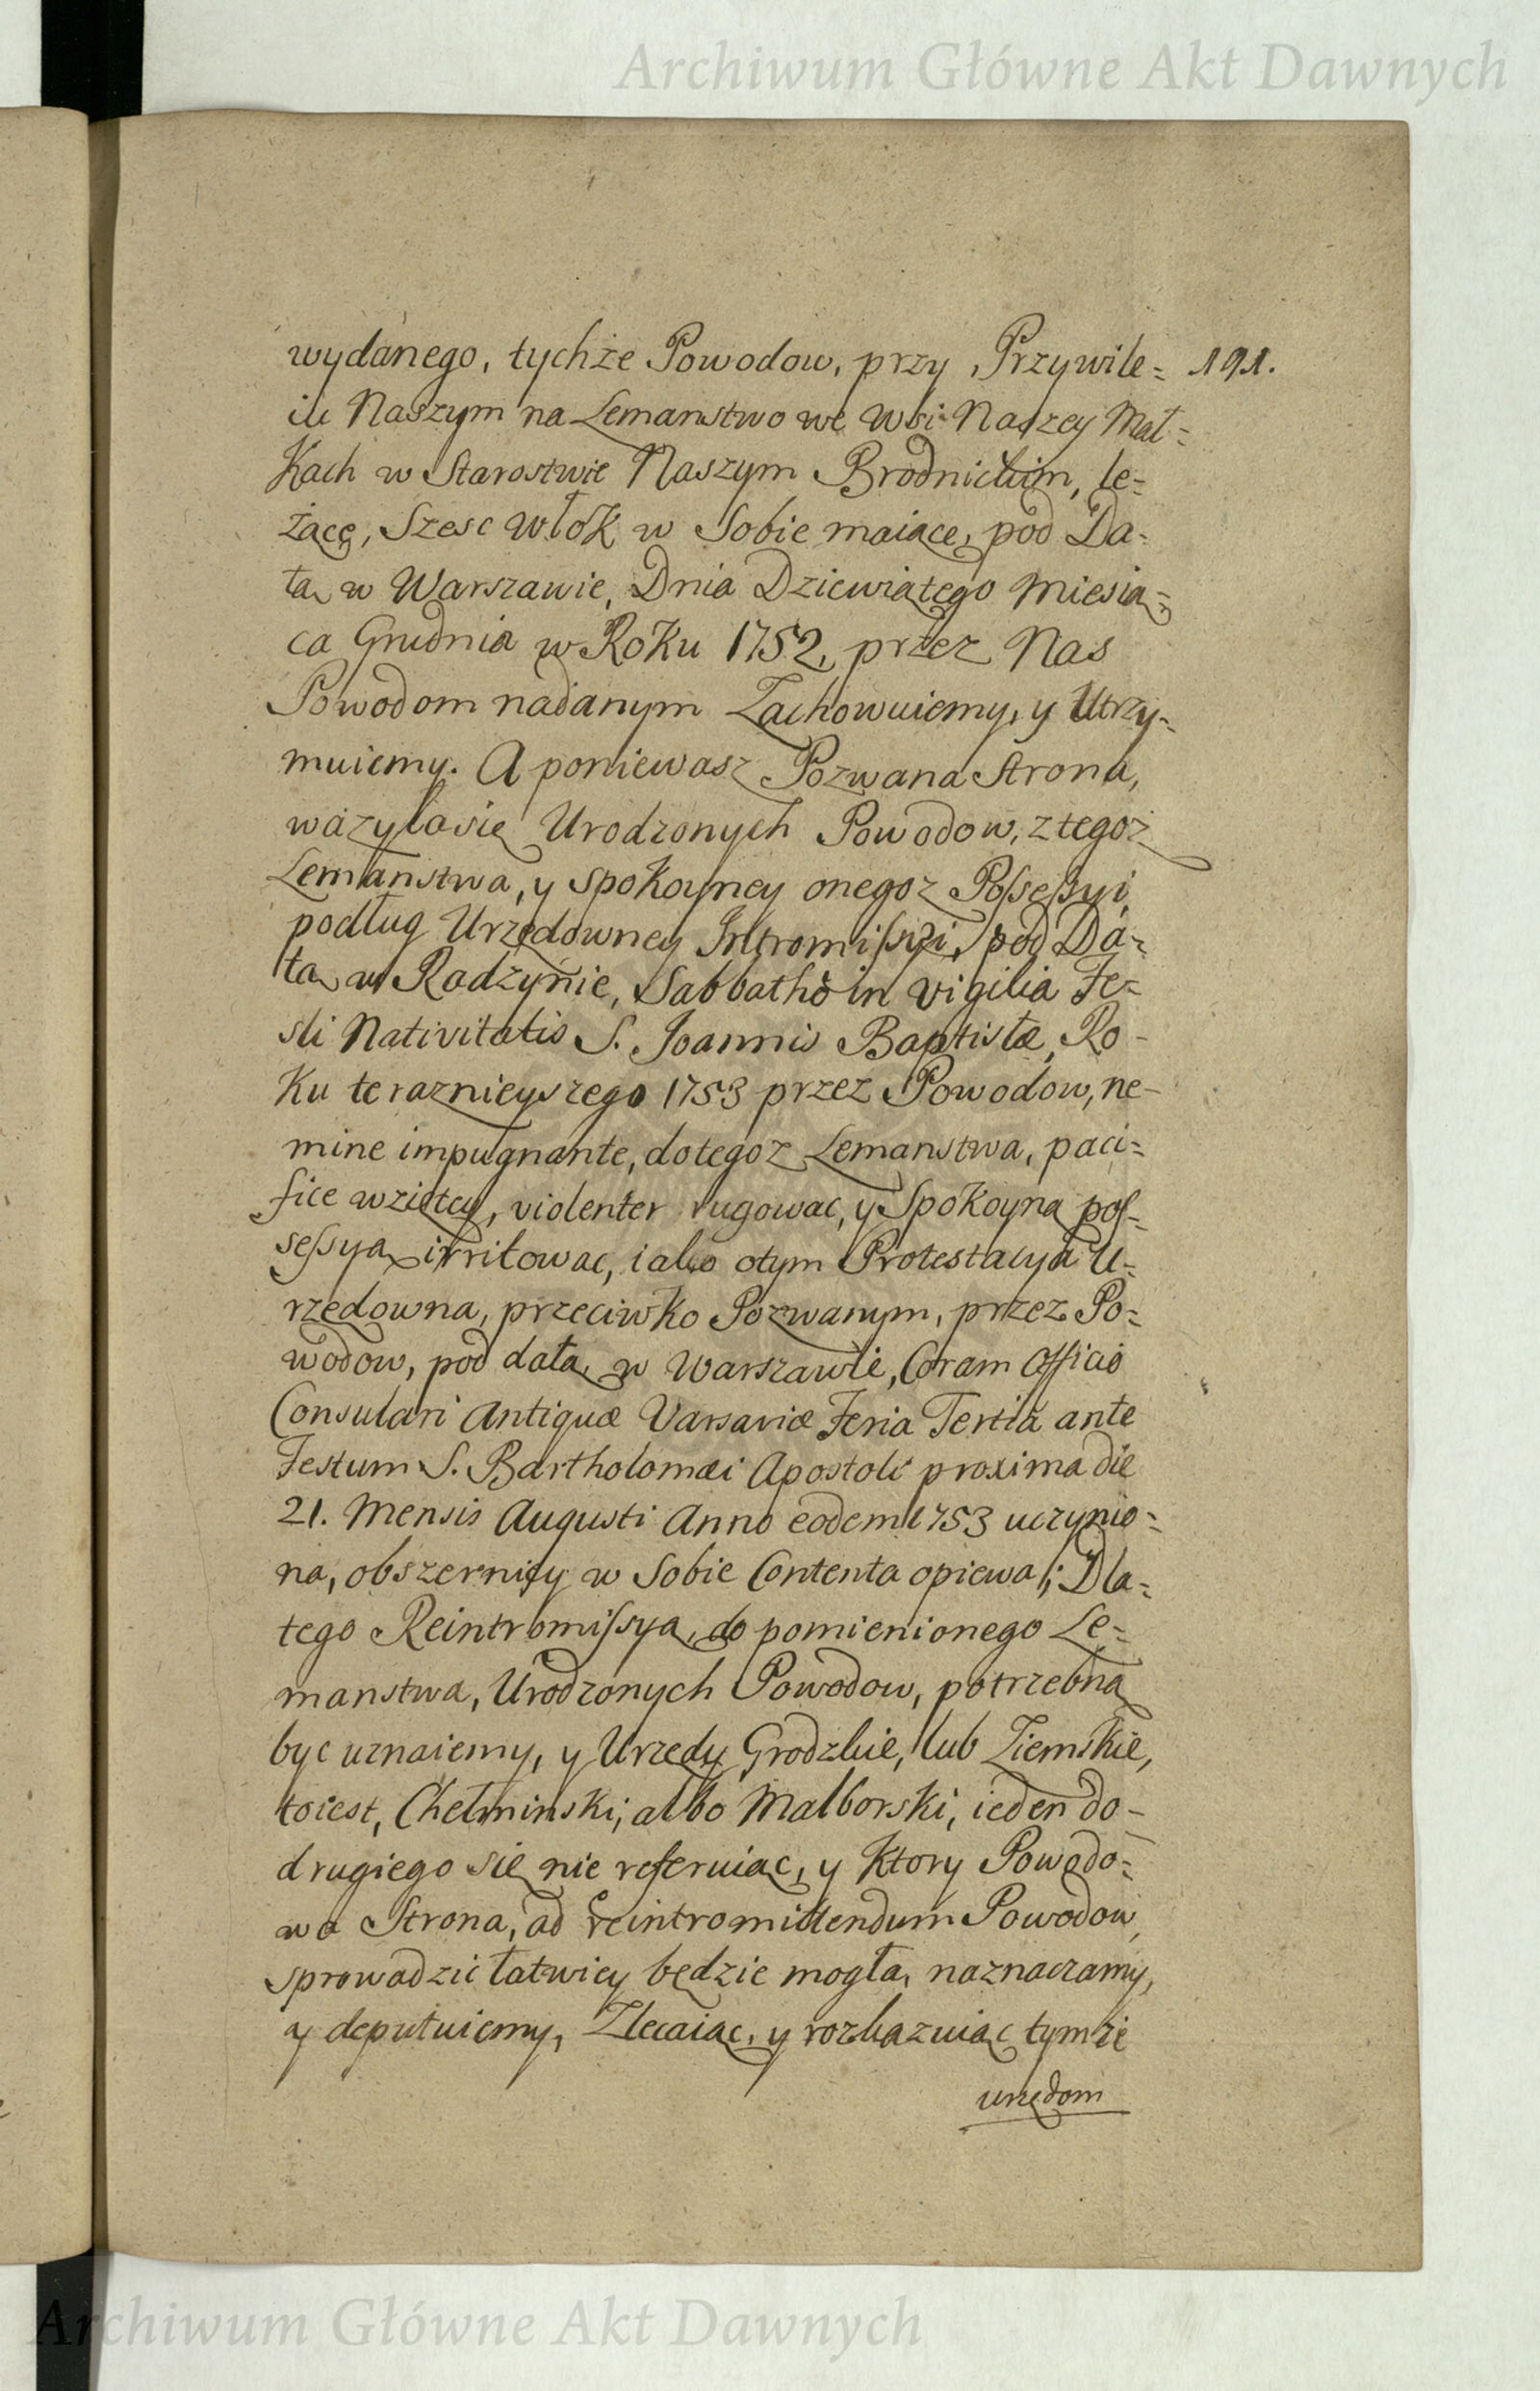 Archiwum Główne Akt Dawnych
wydanego, tychże Powodow, przy Przywile= 191.
iu Naszym na Lemanstwo we Wsi Naszey Mał=
Kach w Starostwie Naszym Brodnickim, le=
żącę, Szesc Włok w Sobie maiące, pod Da=
tą w Warszawie, Dnia Dziewiątego Miesią=
ca Grudnia w Roku 1752, przez Nas
Powodom nadanym Zachowuiemy, y Utrzy=
muiemy. A poniewasz Pozwana Strona,
ważyłasię Urodzonych Powodow, z tegoż
Lemanstwa, y spokoyney onegoz Possessyi,
podług Urzędowney Intromissyi, pod Da=
tą w Radzynie, Sabbatho in vigilia Fe=
sti Nativitatis S. Joannis Baptistæ, Ro=
Ku teraznieyszego 1753 przez Powodow, ne=
mine impugnante, dotegoz Lemanstwa, paci=
fice wziętey, violenter rugowac, y Spokoyną pos=
sessyą irritowac, iako otym Protestacya U=
rzędowna, przeciwko Pozwanym, przez Po=
wodow, pod datą w Warszawie, Coram Officio
Consulari Antiquæ Varsaviæ Feria Tertia ante
Festum S. Bartholomæi Apostoli proxima die
21. Mensis Augusti Anno eodem 1753 uczynio=
na, obszerniey w Sobie Contenta opiewa; Dla=
tego Reintromissyą, do pomienionego Le=
manstwa, Urodzonych Powodow, potrzebną
byc uznaiemy, y Urzędy Grodzkie, lub Ziemskie,
toiest, Chełminski, albo Malborski, ieden do=
drugiego się nie referuiąc, y Ktory Powodo=
wa Strona, ad reintromittendum Powodow,
sprowadzic łatwiey będzie mogła, naznaczamy,
y deputuiemy, Zlecaiąc, y rozkazuiąc tymże
urzędom
Archiwum Główne Akt Dawnych